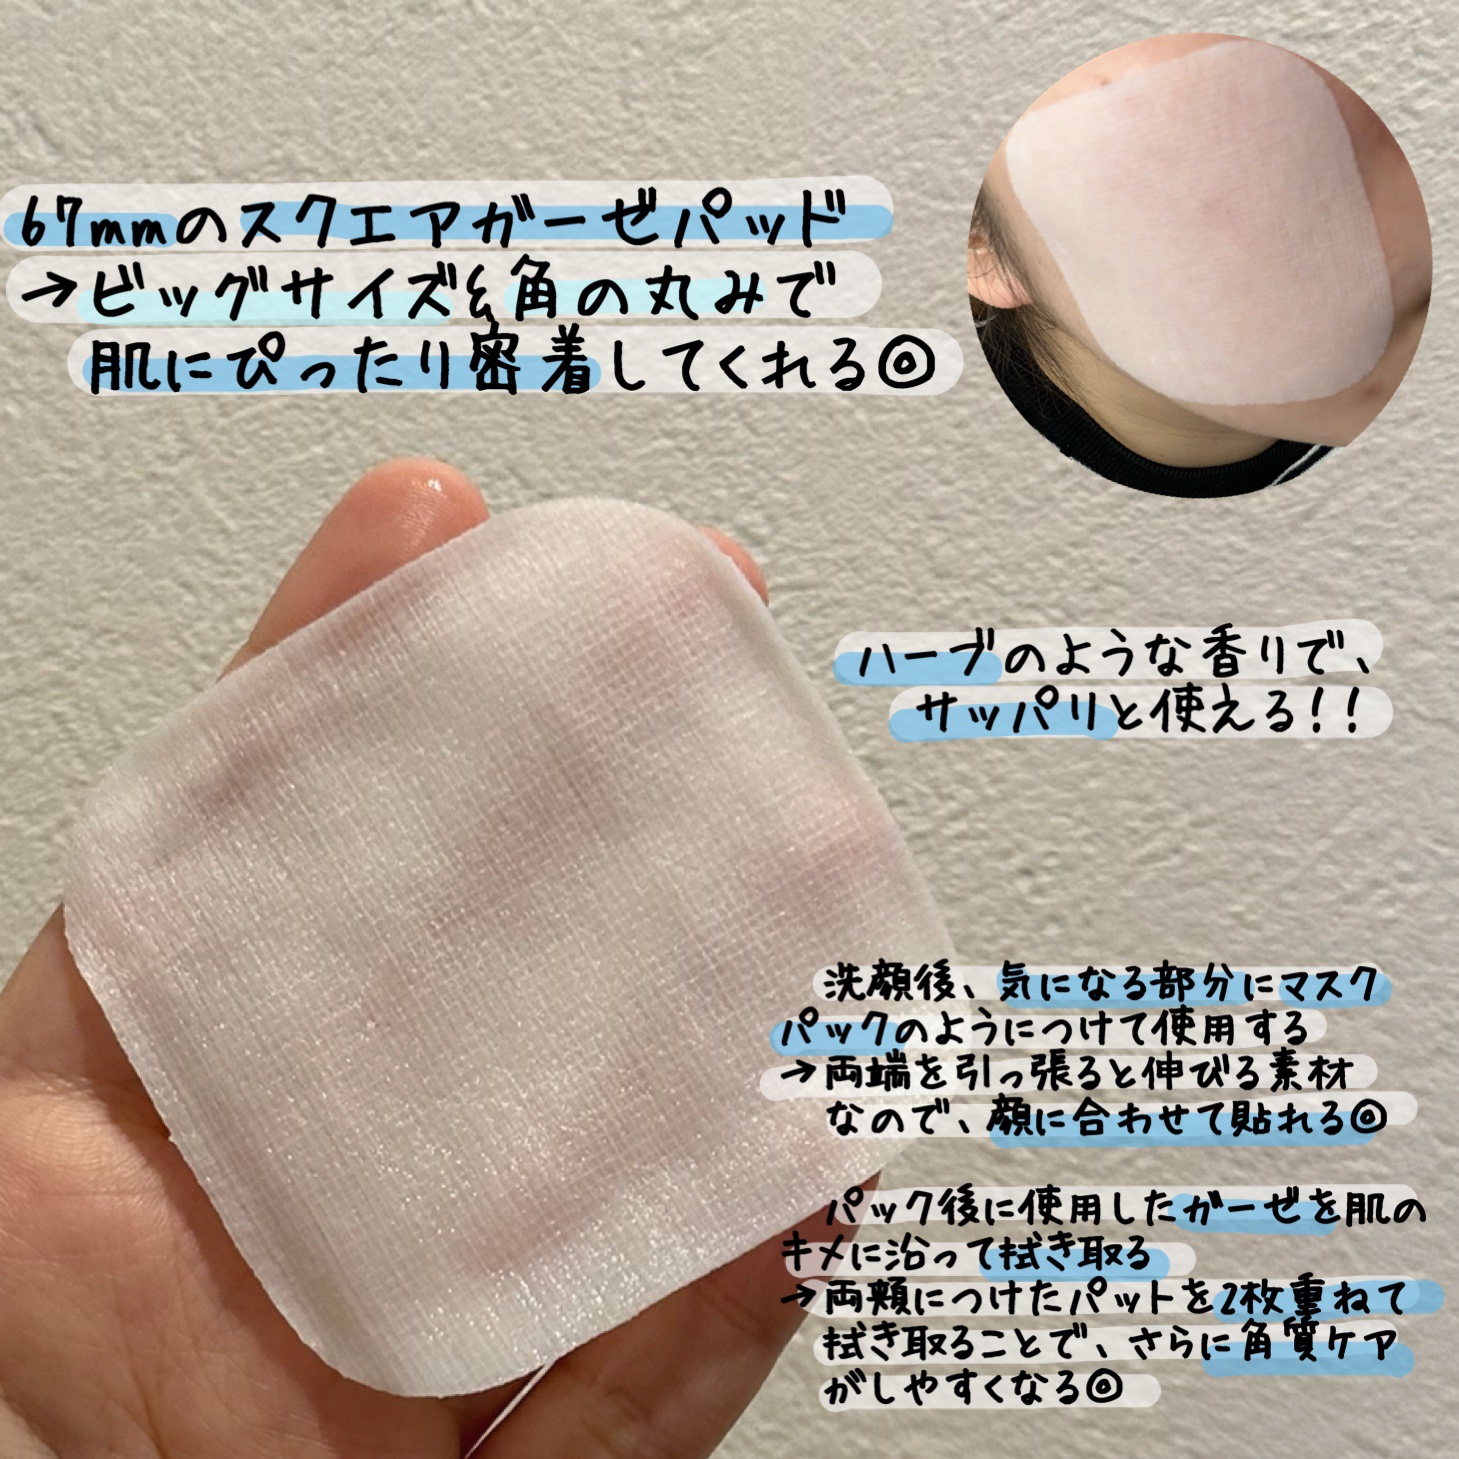 67mmのスクエアガーゼパッド
→ビッグサイズ&角の丸みで
肌にぴったり密着してくれる◎
ハーブのような香りで、
サッパリと使える!!
洗顔後、気になる部分にマスク
パックのようにつけて使用する
→両端を引っ張ると伸びる素材
なので、顔に合わせて貼れる◎
パック後に使用したガーゼを肌の
キメに沿って拭き取る
→両頬につけたパットを2枚重ねて
拭き取ることで、さらに角質ケア
がしやすくなる◎